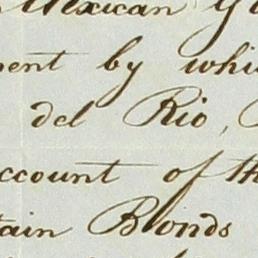 Mexican
ment by whi
del Rio,
ccount of th
tain Bonds